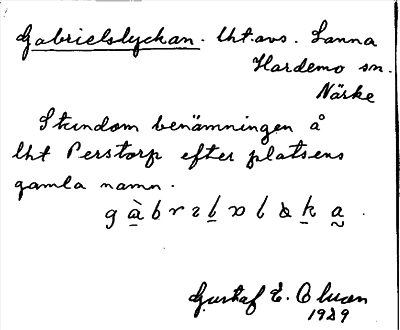 Gabrielslyckan. lht. avs. Sanna
Hardemo sn.
Närke
Stundom benämningen å
lht Perstorp efter platsens
gamla namn.
Gustaf E.
1929